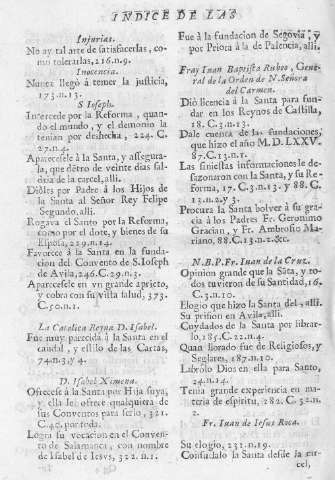 INDICE DE LAS
Injurias.
No ay tal arte de satisfacerlas, co-
mo tolerarlas, 216.n.9.
Inocencia.
Nunca llegò à temer la justicia,
173.n.13.
S. Ioseph.
Intercede por la Reforma, quan-
do el mundo, y el demonio la
tenian por deshecha, 224. C.
27.n.4.
Aparecesele à la Santa, y assegura-
la, que dẽtro de veinte dias sal-
dria de la carcel, alli.
Dióles por Padre à los Hijos de
la Santa al Señor Rey Felipe
Segundo, alli.
Rogava el Santo por la Reforma,
como por el dote, y bienes de su
Esposa, 229.n.14.
Favorecè à la Santa en la funda-
cion del Convento de S. Ioseph
de Avila, 246.C.29.n.3.
Aparecesele en vn grande aprieto,
y cobra con su vista salud, 373.
C.50.n.1.
La Catolica Reyna D. Isabel.
Fue muy parecida à la Santa en el
caudal, y estilo de las Cartas,
74.n.3.y 4.
D. Isabel Ximena.
Ofrecese à la Santa por Hija suya,
y ella le ofrece qualquiera de
sus Conventos para serlo, 321.
C.42.por toda.
Logra su vocacion en el Conven-
to de Salamanca, con nombre
de Isabel de Iesvs, 322.n.1.
Fuè à la fundacion de Segovia, y
por Priora à la de Palencia, alli.
Fray Iuan Baptista Rubeo, Gene-
ral de la Orden de N. Señora
del Carmen.
Diò licencia à la Santa para fun-
dar en los Reynos de Castilla,
18. C.3.n.13.
Dale cuenta de las fundaciones,
que hizo el año M.D.LXXV.
87.C.13.n.1.
Las siniestras informaciones le de-
sazonaron con la Santa, y su Re-
forma, 17. C.3.n.13. y 88. C.
13.n.2.y 3.
Procura la Santa bolver à su gra-
cia à los Padres Fr. Geronimo
Gracian, y Fr. Ambrosio Ma-
riano, 88.C.13.n.2.&c.
N.B.P.Fr. Iuan de la Cruz.
Opinion grande que la Sãta, y to-
dos tuvieron de su Santidad, 16.
C.3.n.10.
Elogio que hizo la Santa del, alli.
Su prision en Avila, alli.
Cuydados de la Santa por librar-
lo, 185.C.22.n.4.
Quan llorado fue de Religiosos, y
Seglares, 187.n.10.
Libròlo Dios en ella para Santo,
24.n.14.
Tenia grande experiencia en ma-
teria de espiritu, 282. C. 32.n.
2.
Fr. Iuan de Iesus Roca.
Su elogio, 231.n.19.
Consuelado la Santa desde la car-
cel,